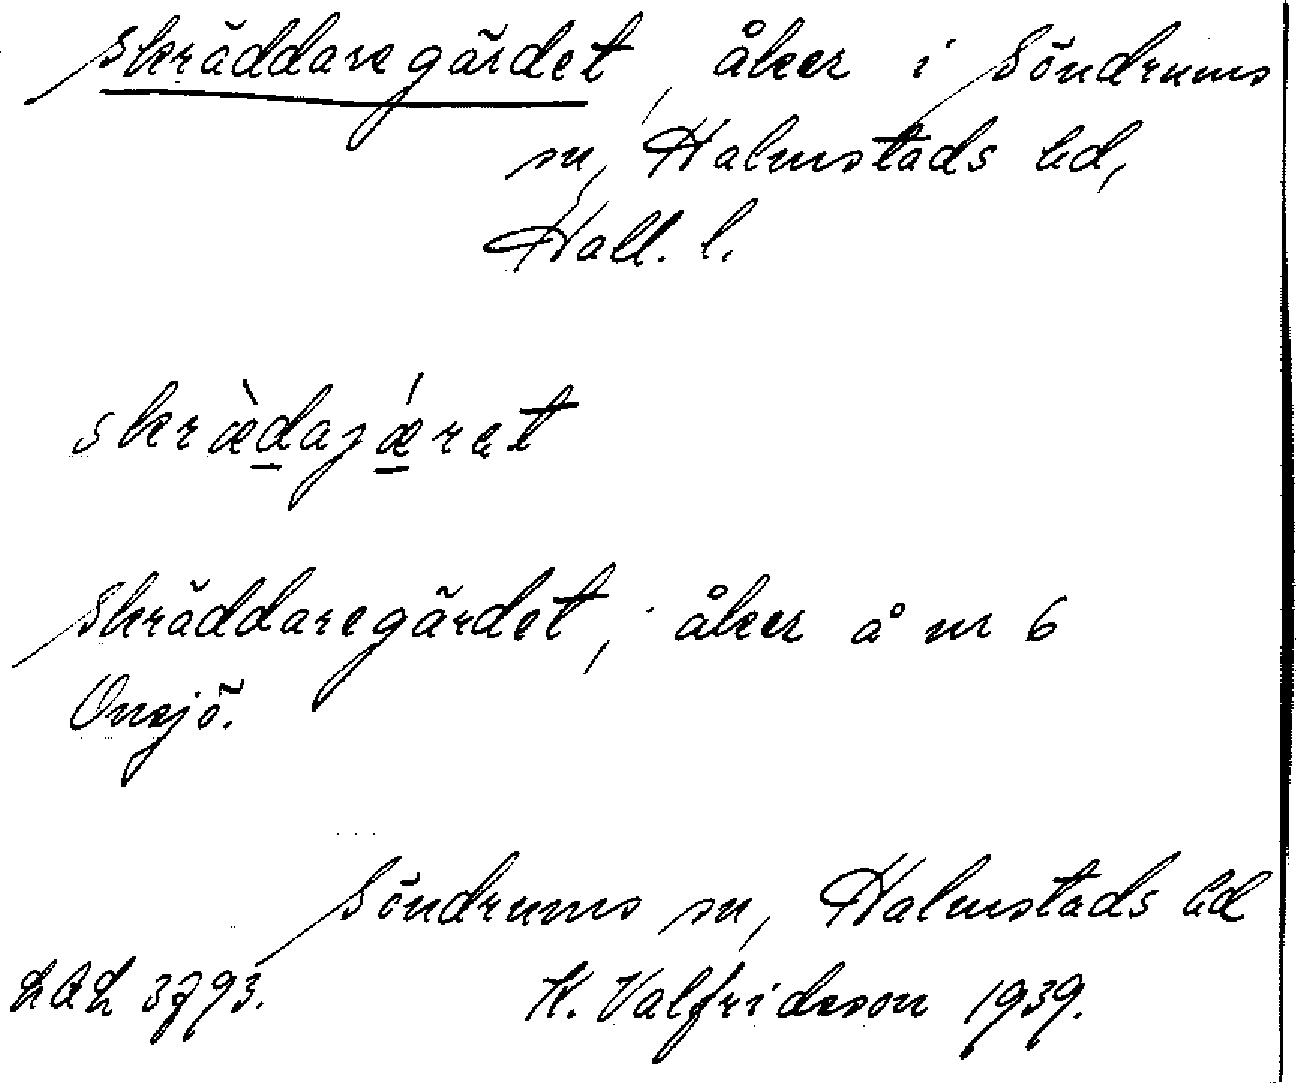 Skräddaregärdet, åker i Söndrums
sn, Halmstads hd,
Hall. l.
skræ̀dajǽret
Skräddaregärdet, åker å nr 6
Onsjö.
Söndrums sn, Halmstads hd
LAL 3793. K. Valfridsson 1939.